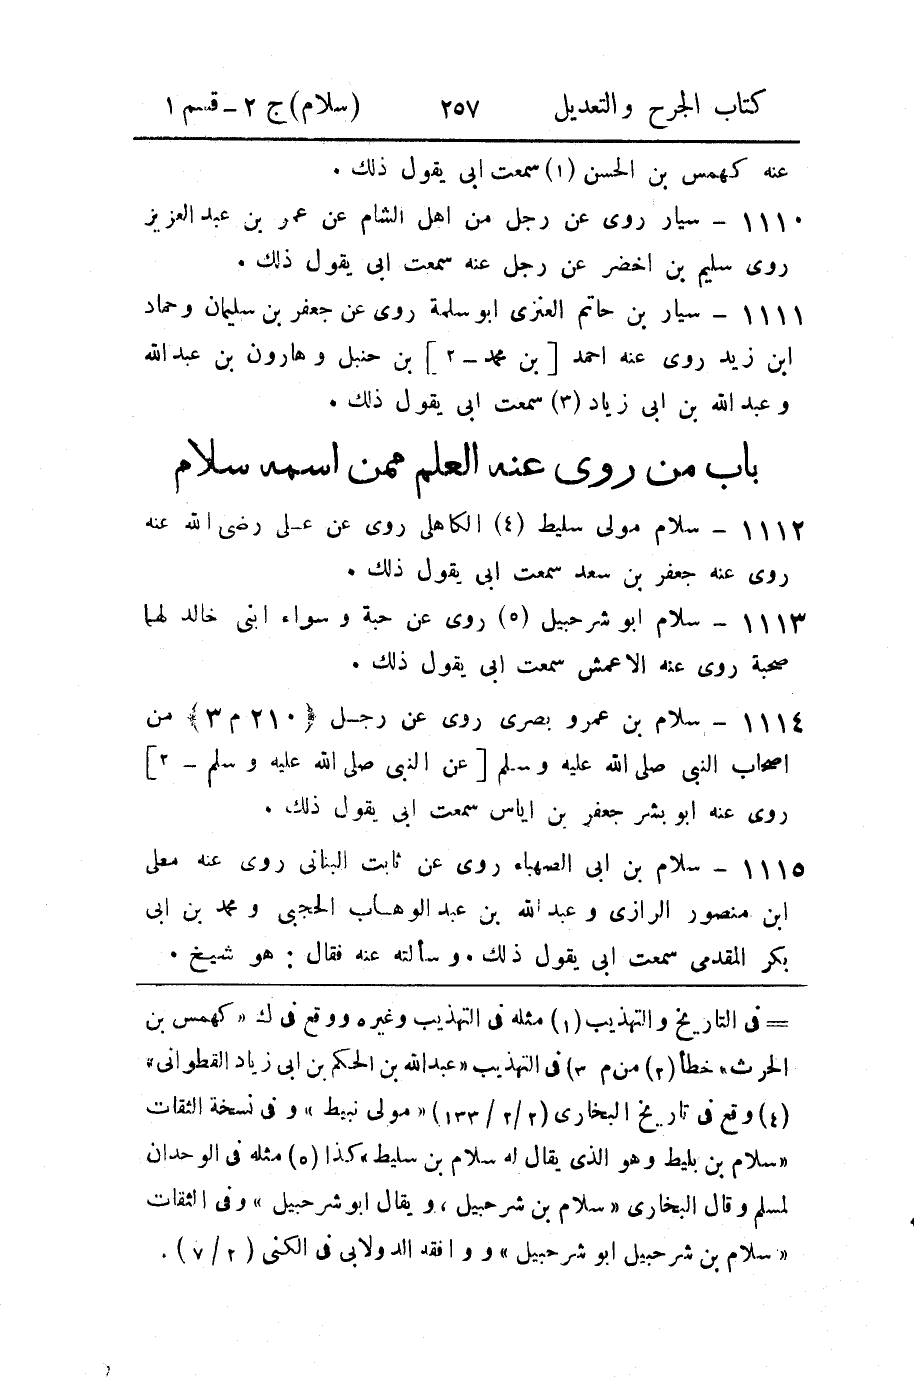 كتاب الجرح والتعديل ٢٥٧ (سلام) ج ٢ - قسم ١
عنه كهمس بن الحسن (١) سمعت ابى يقول ذلك .
١١١٠ - سيار روى عن رجل من اهل الشام عن عمر بن عبد العزيز
روى سليم بن اخضر عن رجل عنه سمعت ابى يقول ذلك .
١١١١ - سيار بن حاتم العنزى ابو سلمة روى عن جعفر بن سليمان وحماد
ابن زيد روى عنه احمد [ بن محمد - ٢ ] بن حنبل و هارون بن عبد الله
و عبد الله بن ابى زياد (٣) سمعت ابى يقول ذلك .
باب من روى عنه العلم ممن اسمه سلام
١١١٢ - سلام مولى سليط (٤) الكاهلى روى عن عـلى رضى الله عنه
روى عنه جعفر بن سعد سمعت ابى يقول ذلك .
١١١٣ - سلام ابو شرحبيل (٥) روى عن حبة و سواء ابنى خالد لهما
صحبة روى عنه الاعمش سمعت ابى يقول ذلك .
١١١٤ - سلام بن عمرو بصرى روى عن رجـل ﴿٢١٠ م ٣﴾ من
اصحاب النبى صلى الله عليه و سلم [ عن النبى صلى الله عليه و سلم - ٢ ]
روى عنه ابو بشر جعفر بن اياس سمعت ابى يقول ذلك .
١١١٥ - سلام بن ابى الصهباء روى عن ثابت البنانى روى عنه معلى
ابن منصور الرازى و عبد الله بن عبد الوهـاب الحجبى و محمد بن ابى
بكر المقدمى سمعت ابى يقول ذلك . و سألته عنه فقال : هو شيخ .
= فى التاريخ والتهذيب (١) مثله فى التهذيب وغيره ووقع فى ك « كهمس بن
الحرث » خطأ (٢) من م (٣) فى التهذيب «عبدالله بن الحكم بن ابى زياد القطوانى»
(٤) وقع فى تاريخ البخارى (٢/٢/ ١٣٣) « مولى نبيط » و فى نسخة الثقات
«سلام بن بليط وهو الذى يقال له سلام بن سليط» كذا (٥) مثله فى الوحدان
لمسلم وقال البخارى « سلام بن شرحبيل ، و يقال ابو شرحبيل » وفى الثقات
« سلام بن شرحبيل ابو شرحبيل » و و افقه الدولابى فى الكنى (٢/ ٧) .